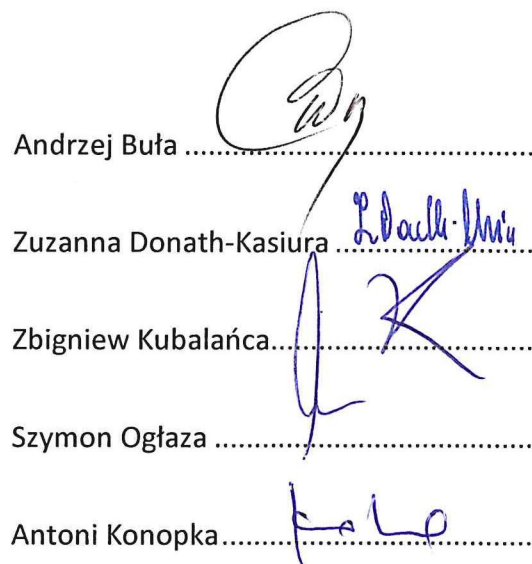 Andrzej Buła ........................................
Zuzanna Donath-Kasiura ......................
Zbigniew Kubalańca..............................
Szymon Ogłaza .....................................
Antoni Konopka....................................